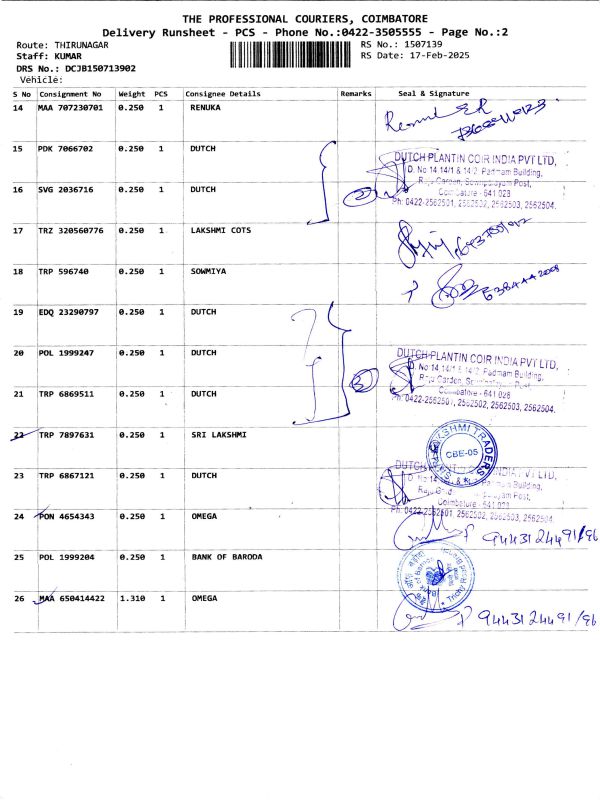 THE PROFESSIONAL COURIERS, COIMBATORE
Delivery Runsheet - PCS - Phone No.:0422-3505555 - Page No.:2
Route: THIRUNAGAR RS No.: 1507139
Staff: KUMAR RS Date: 17-Feb-2025
DRS No.: DCJB150713902
Vehicle:
S No Consignment No Weight PCS Consignee Details Remarks Seal & Signature
14 MAA 707230701 0.250 1 RENUKA
15 PDK 7066702 0.250 1 DUTCH
DUTCH PLANTIN COIR INDIA PVT LTD,
D. No 14.14/1 & 14/2, Padmam Building,
16 SVG 2036716 0.250 1 DUTCH
Raju Garden, Sowripalayam Post,
Coimbatore - 641 028
Ph: 0422-2562501, 2562502, 2562503, 2562504.
17 TRZ 320560776 0.250 1 LAKSHMI COTS
18 TRP 596740 0.250 1 SOWMIYA
19 EDQ 23290797 0.250 1 DUTCH
20 POL 1999247 0.250 1 DUTCH
DUTCH PLANTIN COIR INDIA PVT LTD,
D. No 14.14/1 & 14/2, Padmam Building,
Raju Garden, Post,
21 TRP 6869511 0.250 1 DUTCH
Coimbatore - 641 028
Ph: 0422-2562501, 2562502, 2562503, 2562504.
22 TRP 7897631 0.250 1 SRI LAKSHMI
LAKSHMI TRADERS
CBE-05
23 TRP 6867121 0.250 1 DUTCH
DUTCH INDIA PVT LTD,
Padmam Building,
Post,
Coimbatore - 641 028
Ph: 0422-2562501, 2562502, 2562503, 2562504.
24 PON 4654343 0.250 1 OMEGA
9443124491/96
25 POL 1999204 0.250 1 BANK OF BARODA
26 MAA 650414422 1.310 1 OMEGA
9443124491/96